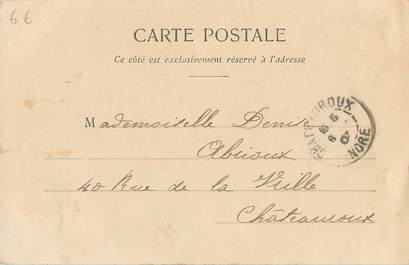 6€
CARTE POSTALE
Ce côté est exclusivement réservé à l'adresse
Mademoiselle Denise
Abrioux
40 Rue de la Ville
Châteauroux
CHATEAUROUX
INDRE